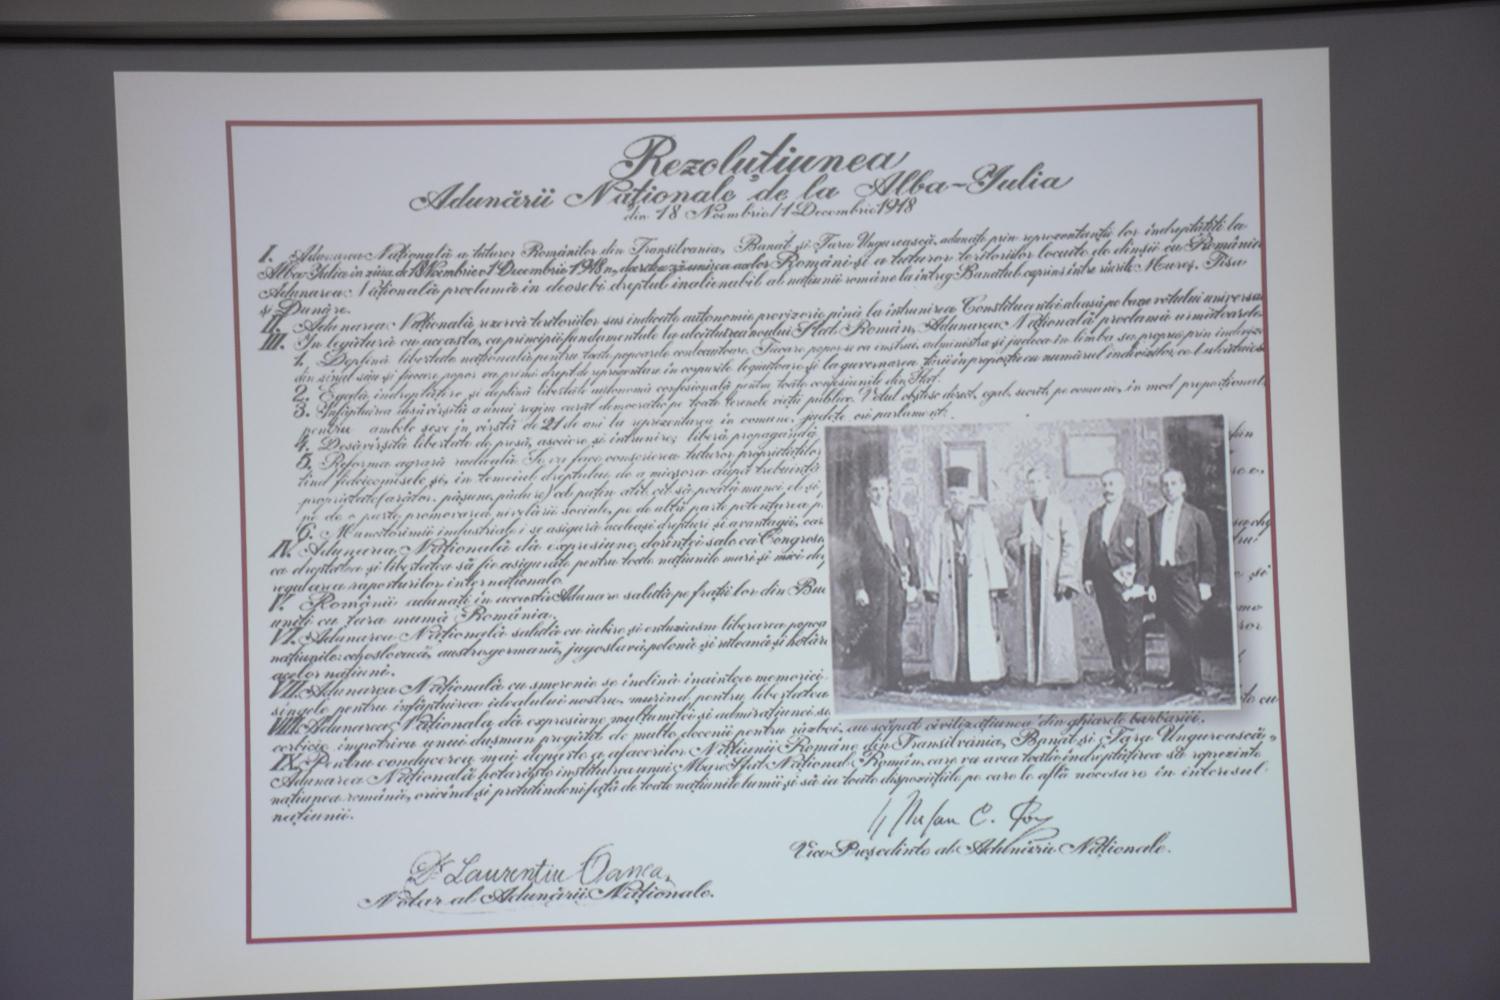 Rezoluțiunea
Adunării Naționale de la Alba-Iulia
din 18 Noembrie/1 Decembrie 1918
I. Adunarea Națională a tuturor Românilor din Transilvania, Banat și Țara Ungurească, adunați prin reprezentanții lor îndreptățiți la
Alba-Iulia în ziua de 18 Noembrie/1 Decembrie 1918, decretează unirea acelor Români și a tuturor teritoriilor locuite de dînșii cu România.
Adunarea Națională proclamă în deosebi dreptul inalienabil al națiunii române la întreg Banatul cuprins între rîurile Mureș, Tisa
și Dunăre.
II. Adunarea Națională rezervă teritoriilor sus indicate autonomie provizorie pînă la întrunirea Constituantei aleasă pe baza votului univers
III. În legătură cu aceasta, ca principii fundamentale la alcătuirea noului Stat Român, Adunarea Națională proclamă următoarele
1. Deplină libertate națională pentru toate popoarele conlocuitoare. Fiecare popor se va instrui, administra și judeca în limba sa proprie prin indivizi
din sînul său și fiecare popor va primi drept de reprezentare în corpurile legiuitoare și la guvernarea țării în proporție cu numărul indivizilor ce-l alcătuies
2. Egală îndreptățire și deplină libertate autonomă confesională pentru toate confesiunile din Stat.
3. Înfăptuirea desăvîrșită a unui regim curat democratic pe toate terenele vieții publice. Votul obștesc direct, egal, secret, pe comune, în mod proporțional,
pentru ambele sexe în vîrstă de 21 de ani la reprezentarea în comune, județe ori parlament.
4. Desăvîrșită libertate de presă, asociere și întrunire; liberă propagandă
5. Reforma agrară radicală. Se va face conscrierea tuturor proprietăților
țind fideicomisele și, în temeiul dreptului de a micșora după trebuință
proprietate (arător, pășune, pădure) cel puțin atît cît să poată munci el și
pe de o parte promovarea nivelării sociale, pe de altă parte potențarea p
6. Muncitorimii industriale i se asigură aceleași drepturi și avantagii, car
IV. Adunarea Națională dă expresiune dorinței sale ca Congresu
ca dreptatea și libertatea să fie asigurate pentru toate națiunile mari și mici de
regularea raporturilor internaționale.
V. Românii adunați în această Adunare salută pe frații lor din Bu
uniți cu țara mumă România.
VI. Adunarea Națională salută cu iubire și entuziasm liberarea popoa
națiunile: cehoslovacă, austro-germană, jugoslavă, polonă și ruteană și hotăr
acelor națiuni.
VII. Adunarea Națională cu smerenie se închină înaintea memoriei
sîngele pentru înfăptuirea idealului nostru, murind pentru libertatea
VIII. Adunarea Națională dă expresiune mulțumitei și admirațiunei s
cerbicie împotriva unui dușman pregătit de multe decenii pentru război, au scăpat civilizațiunea din ghiarele barbariei.
IX. Pentru conducerea mai departe a afacerilor Națiunii Române din Transilvania, Banat și Țara Ungurească,
Adunarea Națională hotărăște instituirea unui Mare Sfat Național Român, care va avea toată îndreptățirea să reprezinte
națiunea română, oricînd și pretutindeni față de toate națiunile lumii și să ia toate dispozițiile pe care le află necesare în interesul
națiunii.
Vice Președinte al Adunării Naționale.
Dr Laurențiu Oanea
Notar al Adunării Naționale.